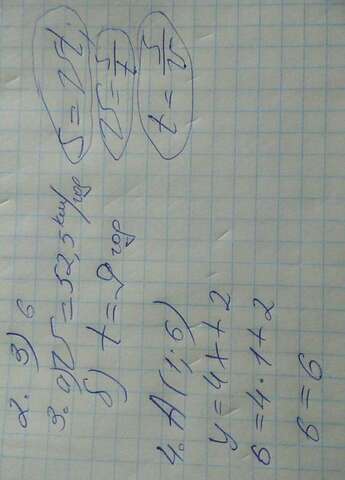 2. 3) 6
3. а) V = 52,5 км/год
б) t = 9 год
S = Vt
V = S/t
t = S/V
4. A(1; 6)
y = 4x + 2
6 = 4·1+2
6 = 6